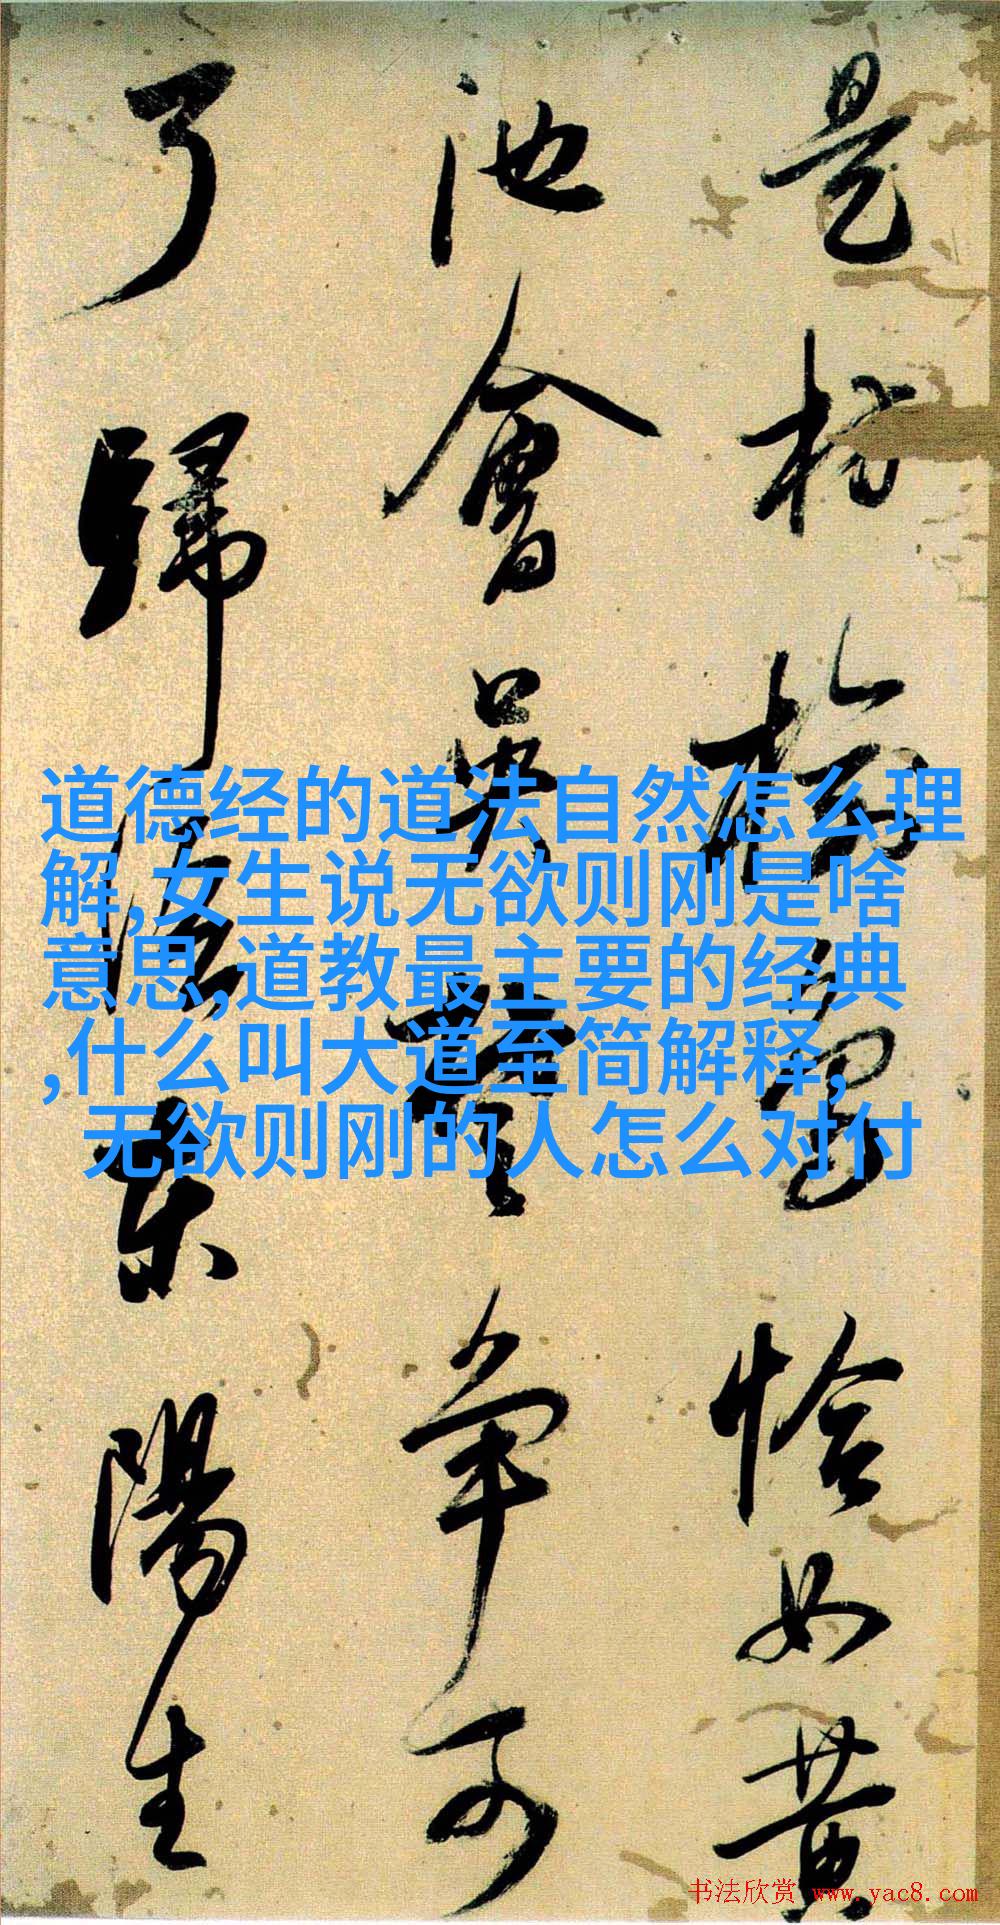 是恰如黄
池會吴争
了歸東陽生
道德经的道法自然怎么理
解,女生说无欲则刚是啥
意思,道教最主要的经典
,什么叫大道至简解释,
无欲则刚的人怎么对付
书法欣赏 www.yac8.com